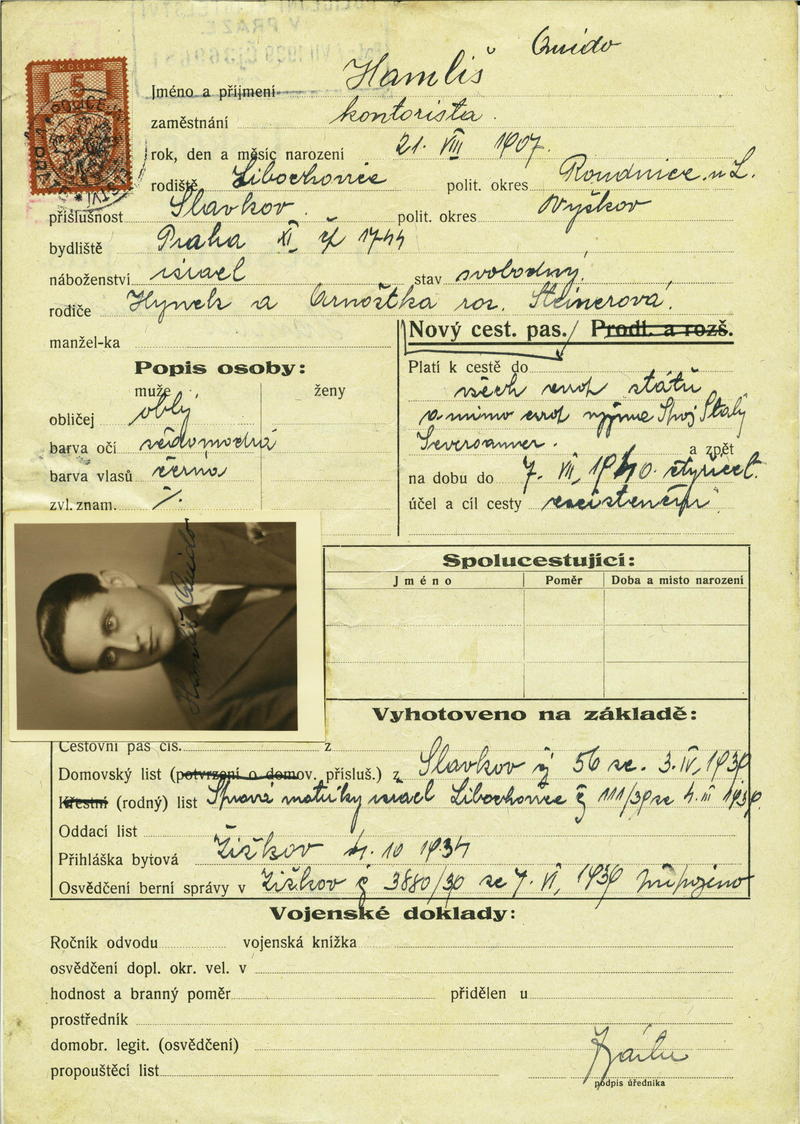 V PRAZE
KOLEK
5
Quido
Jméno a příjmení Hamliš
zaměstnání kontorista.
rok, den a měsíc narození 21. VIII 1907.
rodiště Libochovice polit. okres Roudnice n L.
příslušnost Slavkov. polit. okres Vyškov
bydliště Praha XI čp 1744
náboženství israel stav svobodný
rodiče Hynek a Arnoštka roz. Steinerová.
manžel-ka
Nový cest. pas. / Prodl. a rozš.
Popis osoby:
muže ženy
obličej oblý
barva očí šedomodrá
barva vlasů černá
zvl. znam. /.
Platí k cestě do
všech evrop států
a mimo evrop vyjma Spoj Státy
Severoamer. a zpět
na dobu do 7. VII, 1940. čtyřicet.
účel a cíl cesty existenční
Hamliš Quido
Spolucestující:
Jméno Poměr Doba a místo narození
Vyhotoveno na základě:
Cestovní pas čís. z
Domovský list (potvrzení o domov. přísluš.) z Slavkov čj 56 ze 3. IV, 1939
Křestní (rodný) list Správa matriky israel Libochovice č 111/39 ze 4. III 1939.
Oddací list
Přihláška bytová Žižkov 4. 10 1934
Osvědčení berní správy v Žižkov č 3880/30 ze 7. VI, 1939 připojeno
Vojenské doklady:
Ročník odvodu vojenská knížka
osvědčení dopl. okr. vel. v
hodnost a branný poměr přidělen u
prostředník
domobr. legit. (osvědčení)
propouštěcí list
podpis úředníka